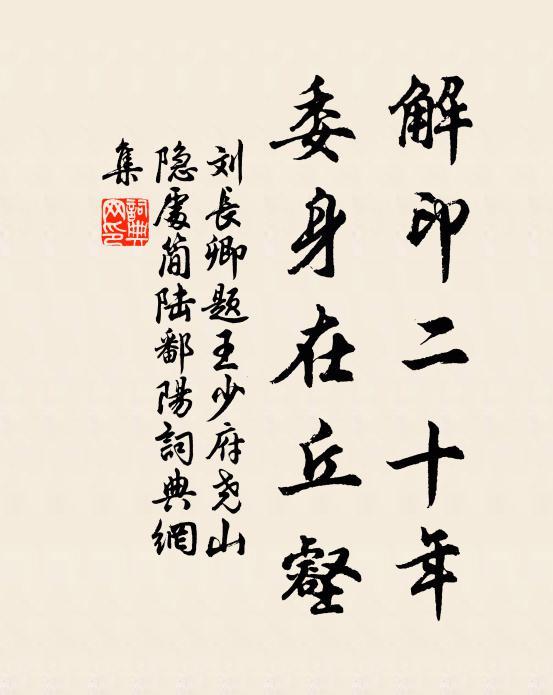 解印二十年
委身在丘壑
刘長卿題王少府尧山
隐處简陆鄱陽詞典網
集
詞典網印